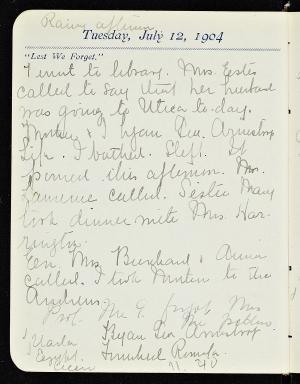 Rainy afternoon.
Tuesday, July 12, 1904
"Lest We Forget."
I went to library. Mrs. Estes
called to say that her husband
was going to Utica to-day.
Mother & I began Geo. Armstrong
Life. I bathed. Slept. It
poured this afternoon. Mrs.
Lawrence called. Sister Mary
took dinner with Mrs. Har-
rington.
Eve. Mrs. Burchard & Anna
called. I took Mother to the
Andrews.
Prof. Mc G. Mrs
Began Geo Armstrong
Egypt. Finished Romola.